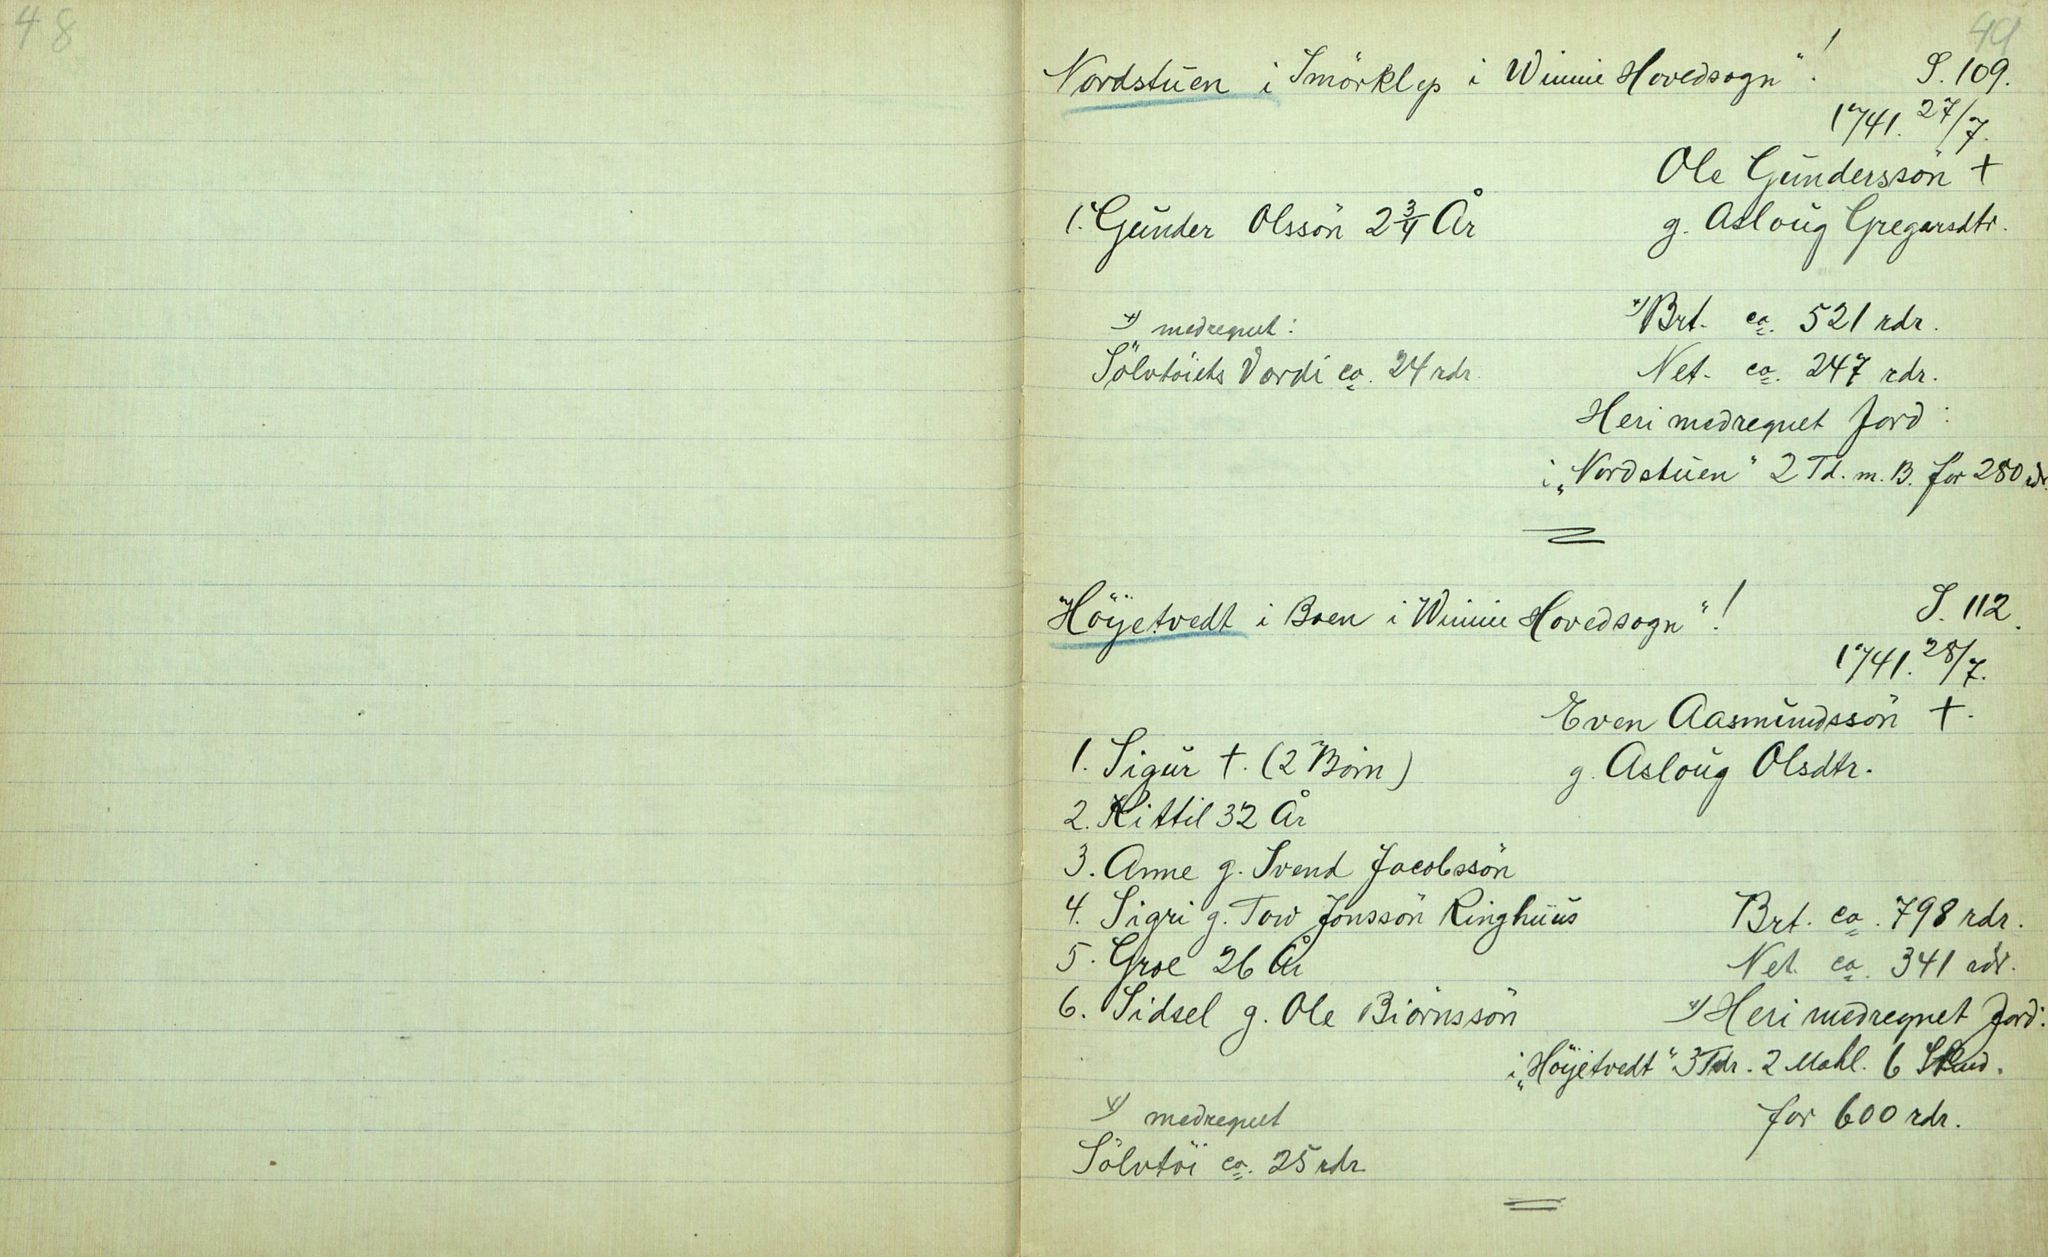 48
49
Nordstuen i Smörklep i Winnie Hovedsogn"! S. 109.
1741. 27/7.
Ole Gunderssön †
1. Gunder Olssön 2 3/4 År g. Asloug Gregarsdtr.
x) Brt. ca. 521 rdr.
x) medregnet:
Sölvtöiets Værdi ca. 24 rdr. Net. ca. 247 rdr.
Heri medregnet Jord:
i „Nordstuen" 2 Td. m. B. for 280 rdr.
"Höÿetvedt i Boen i Winnie Hovedsogn"! S. 112.
1741. 28/7.
Even Aasmundssön †.
1. Sigur †. (2 Börn) g. Asloug Olsdtr.
2. Kittil 32 År
3. Anne g. Svend Jacobssön
4. Sigri g. Tov Jonssön Ringhuus Brt. ca. 798 rdr.
5. Groe 26 År Net. ca. 341 rdr.
6. Sidsel g. Ole Biörnssön x) Heri medregnet Jord:
i „Höÿetvedt" 3 Tdr. 2 Mahl. 6 Skind.
x) medregnet for 600 rdr.
Sölvtöi ca. 25 rdr